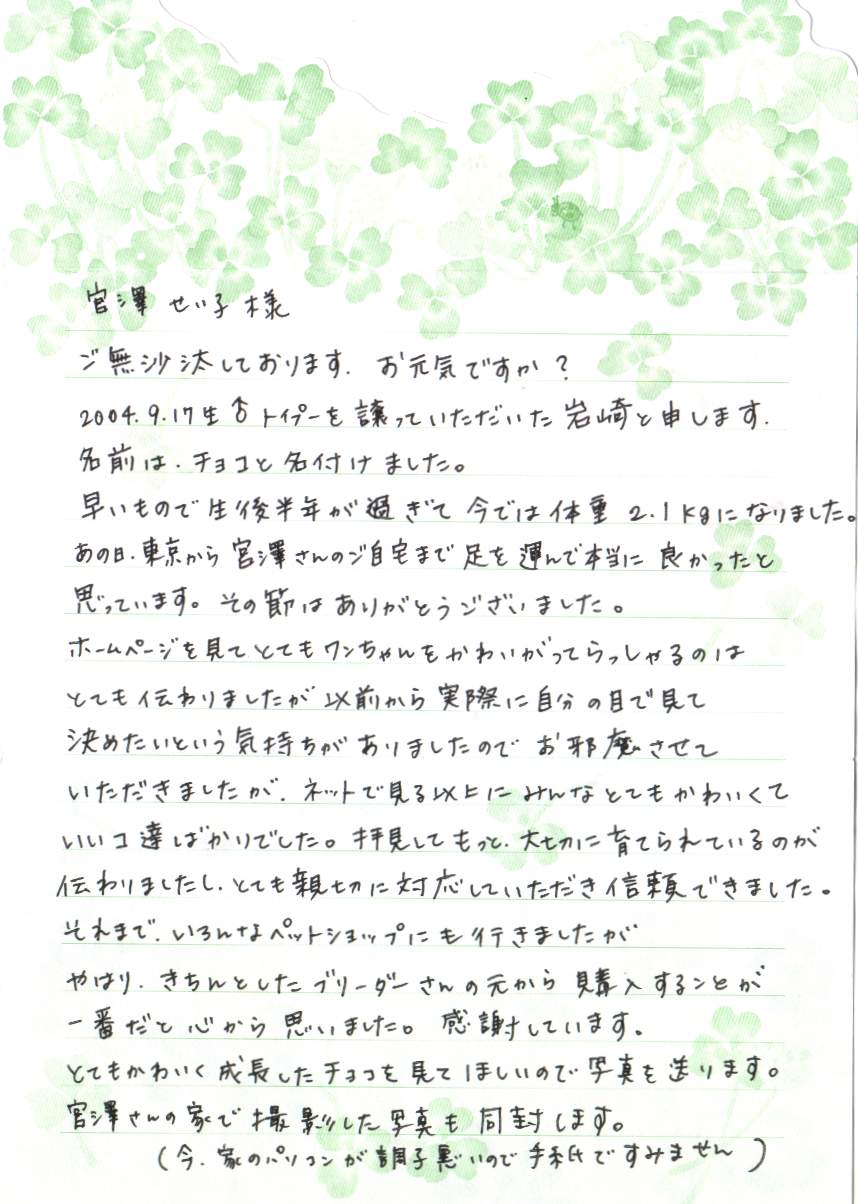 宮澤 せい子 様
ご無沙汰しております. お元気ですか?
2004.9.17生♂トイプーを譲っていただいた岩崎と申します.
名前は.チョコと名付けました。
早いもので生後半年が過ぎて今では体重2.1kgになりました。
あの日.東京から宮澤さんのご自宅まで足を運んで本当に良かったと
思っています。その節はありがとうございました。
ホームページを見てとてもワンちゃんをかわいがってらっしゃるのは
とても伝わりましたが以前から実際に自分の目で見て
決めたいという気持ちがありましたのでお邪魔させて
いただきましたが.ネットで見る以上にみんなとてもかわいくて
いいコ達ばかりでした。拝見してもっと.大切に育てられているのが
伝わりましたし.とても親切に対応していただき信頼できました。
それまで.いろんなペットショップにも行きましたが
やはり.きちんとしたブリーダーさんの元から購入することが
一番だと心から思いました。感謝しています。
とてもかわいく成長したチョコを見てほしいので写真を送ります。
宮澤さんの家で撮影した写真も同封します。
(今.家のパソコンが調子悪いので手紙ですみません)